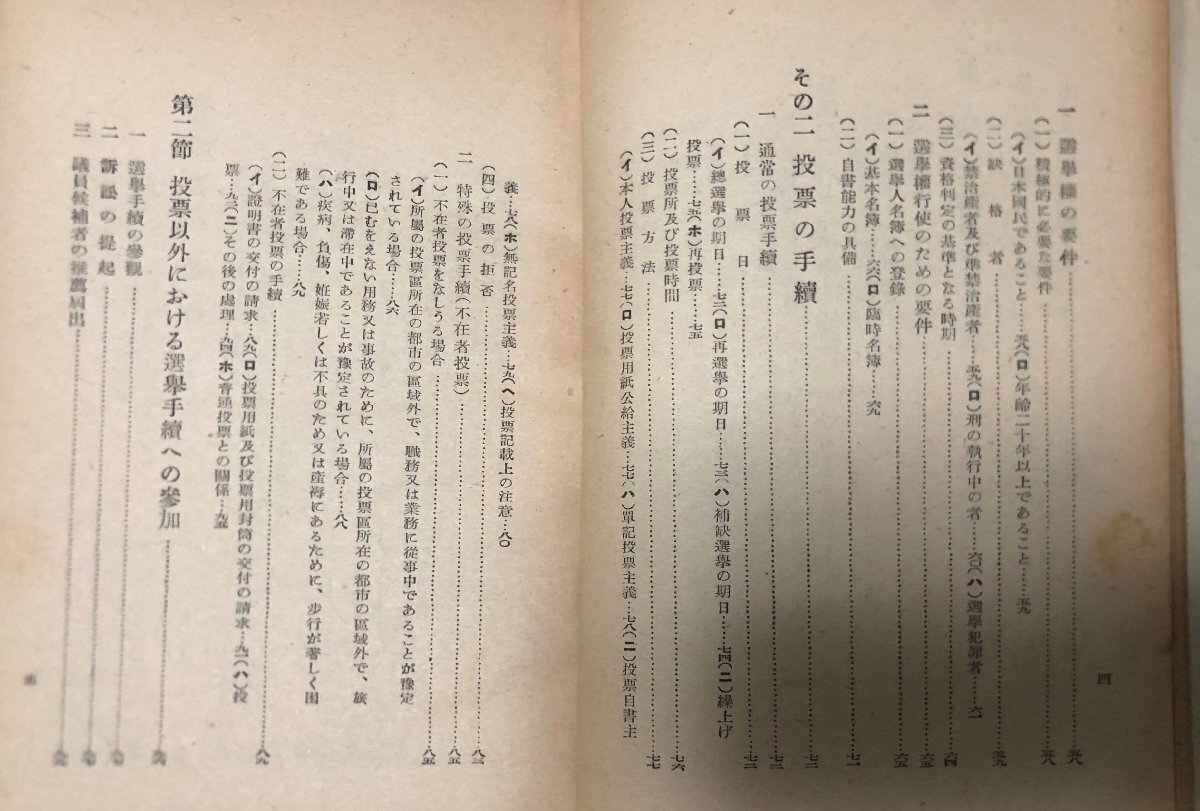 一 選擧權の要件……五八
(一)積極的に必要な要件……五八
(イ)日本國民であること……五八(ロ)年齡二十年以上であること……五九
(二)缺格者……五九
(イ)禁治產者及び準禁治產者……五九(ロ)刑の執行中の者……六〇(ハ)選擧犯罪者……六一
(三)資格判定の基準となる時期……六四
二 選擧權行使のための要件……六五
(一)選擧人名簿への登錄……六五
(イ)基本名簿……六六(ロ)臨時名簿……六九
(二)自書能力の具備……七一
その二 投票の手續……七二
一 通常の投票手續……七二
(一)投票日……七二
(イ)總選擧の期日……七二(ロ)再選擧の期日……七三(ハ)補缺選擧の期日……七四(ニ)繰上げ
投票……七五(ホ)再投票……七五
(二)投票所及び投票時間……七六
(三)投票方法……七七
(イ)本人投票主義…七七(ロ)投票用紙公給主義…七七(ハ)單記投票主義…七八(ニ)投票自書主
四
義…七八(ホ)無記名投票主義…七九(ヘ)投票記載上の注意…八〇
(四)投票の拒否……八三
二 特殊の投票手續(不在者投票)……八五
(一)不在者投票をなしうる場合……八五
(イ)所屬の投票區所在の都市の區域外で、職務又は業務に從事中であることが豫定
されている場合……八六
(ロ)已むをえない用務又は事故のために、所屬の投票區所在の都市の區域外で、旅
行中又は滯在中であることが豫定されている場合……八八
(ハ)疾病、負傷、妊娠若しくは不具のため又は產褥にあるために、步行が著しく困
難である場合……八九
(二)不在者投票の手續……八九
(イ)證明書の交付の請求…八九(ロ)投票用紙及び投票用封筒の交付の請求…九一(ハ)投
票…九三(ニ)その後の處理…九四(ホ)普通投票との關係…九五
第二節 投票以外における選擧手續への參加
一 選擧手續の參觀
二 訴訟の提起
三 議員候補者の推薦屆出
五